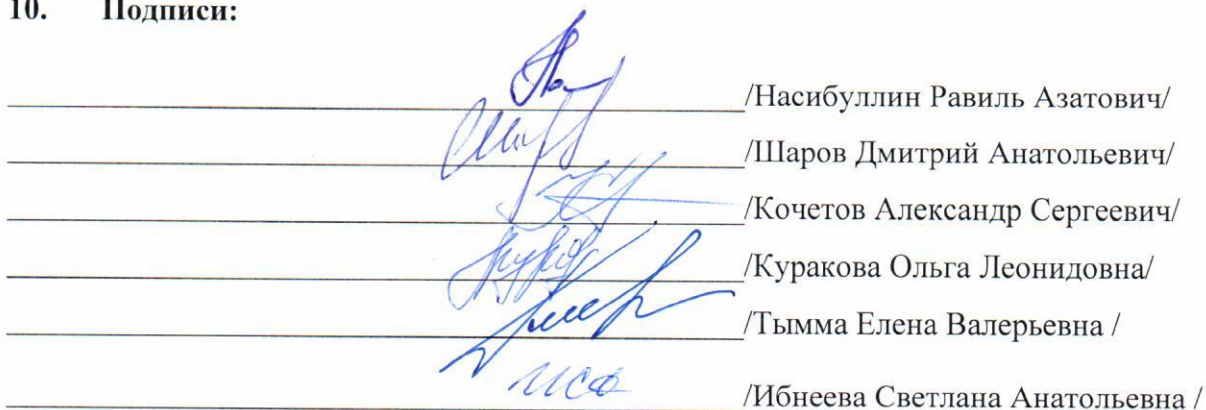 10. Подписи:
/Насибуллин Равиль Азатович/
/Шаров Дмитрий Анатольевич/
/Кочетов Александр Сергеевич/
/Куракова Ольга Леонидовна/
/Тымма Елена Валерьевна /
/Ибнеева Светлана Анатольевна /